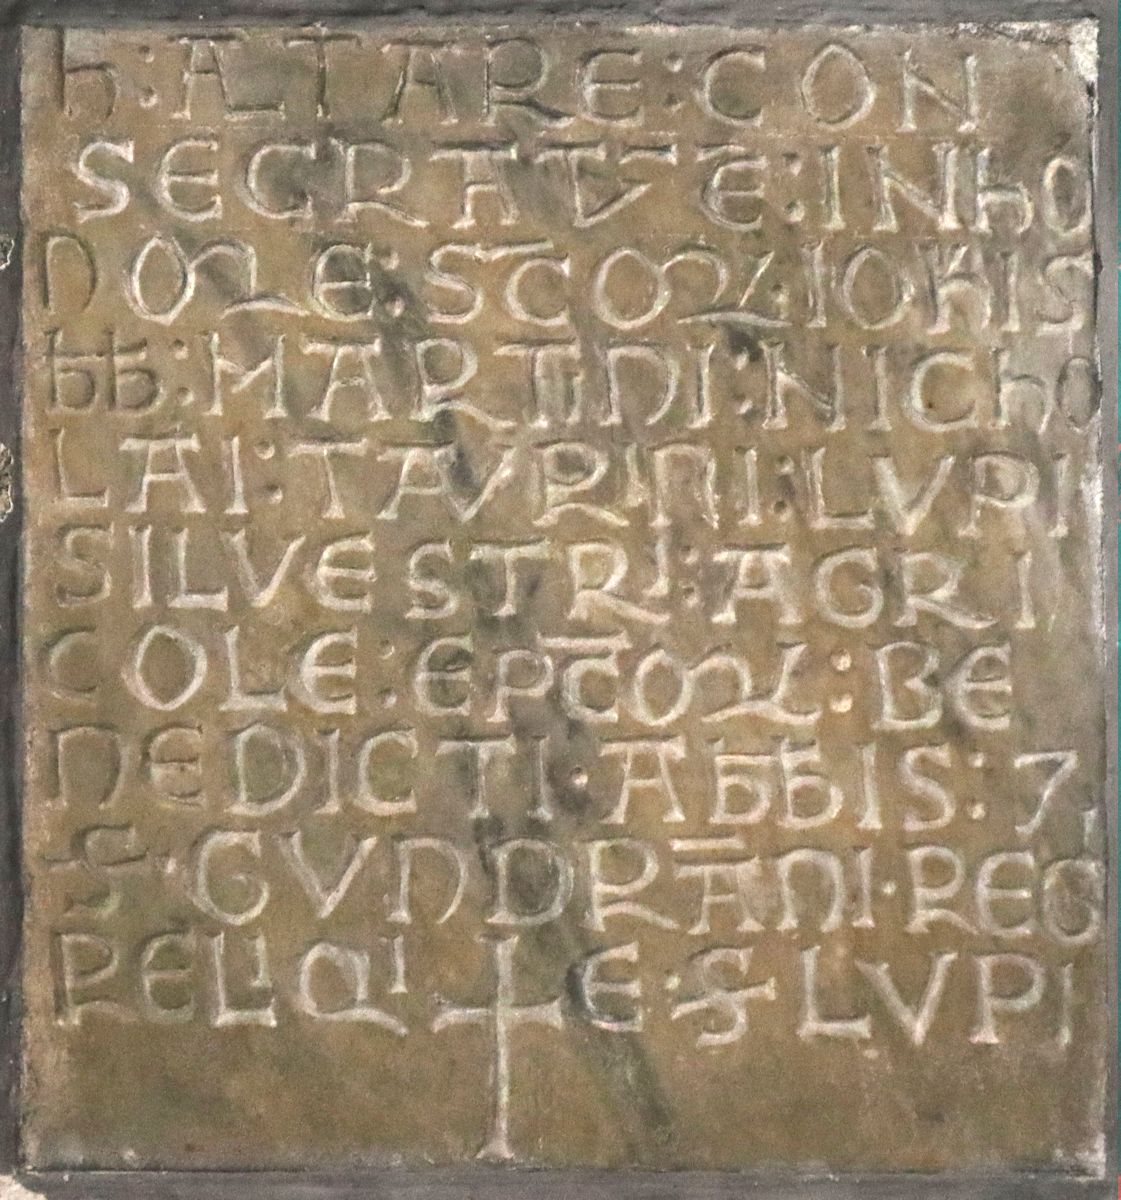 h : ALTARE : CON
SECRATV̄ E : IN hO
NOR̄E : SC̄OR : IOhIS
ƀƀ : MARTINI : NICHO
LAI : TAVRINI : LVPI
SILVESTRI : AGRI
COLE : EPC̄OR : BE
NEDICTI : AƀƀIS : 7
S : GVNDRĀNI · REG
RELIQI ✝ E : S LVPI